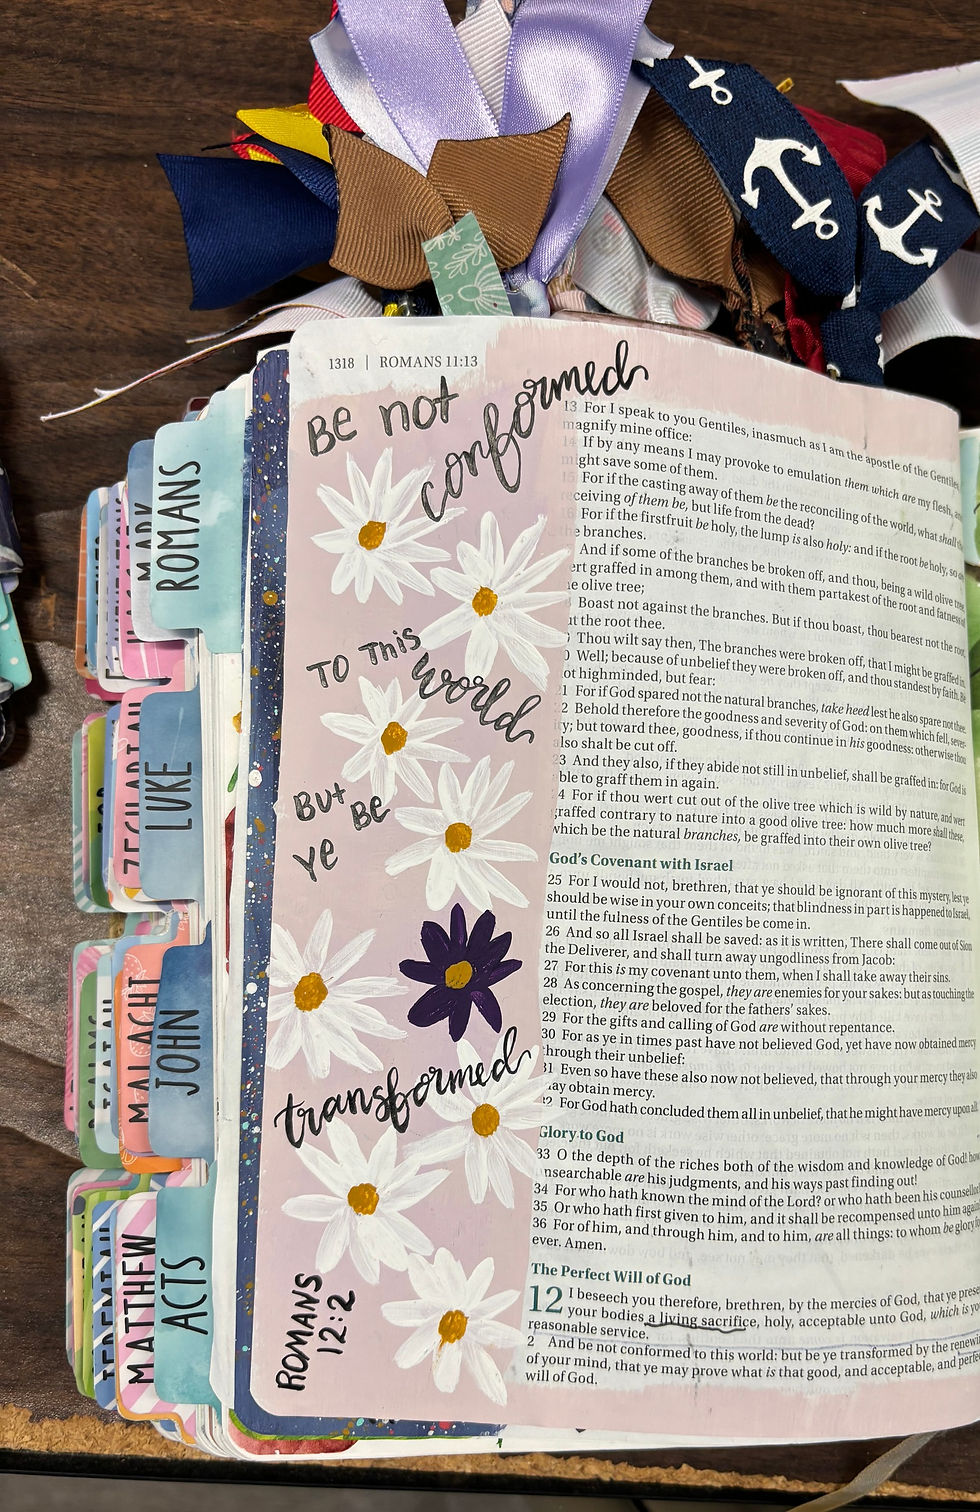 1318 | ROMANS 11:13
Be not
conformed
TO This
World
But Be
ye
transformed
ROMANS
12:2
13 For I speak to you Gentiles, inasmuch as I am the apostle of the Gentiles,
magnify mine office:
14 If by any means I may provoke to emulation them which are my flesh,
might save some of them.
15 For if the casting away of them be the reconciling of the world, what shall
receiving of them be, but life from the dead?
16 For if the firstfruit be holy, the lump is also holy: and if the root be holy, so
the branches.
And if some of the branches be broken off, and thou, being a wild olive tree,
ert graffed in among them, and with them partakest of the root and fatness of
e olive tree;
Boast not against the branches. But if thou boast, thou bearest not the root,
ut the root thee.
Thou wilt say then, The branches were broken off, that I might be graffed in.
0 Well; because of unbelief they were broken off, and thou standest by faith. Be
ot highminded, but fear:
21 For if God spared not the natural branches, take heed lest he also spare not thee.
22 Behold therefore the goodness and severity of God: on them which fell, sever-
ity; but toward thee, goodness, if thou continue in his goodness: otherwise thou
also shalt be cut off.
23 And they also, if they abide not still in unbelief, shall be graffed in: for God is
able to graff them in again.
24 For if thou wert cut out of the olive tree which is wild by nature, and wert
graffed contrary to nature into a good olive tree: how much more shall these,
which be the natural branches, be graffed into their own olive tree?
God's Covenant with Israel
25 For I would not, brethren, that ye should be ignorant of this mystery, lest ye
should be wise in your own conceits; that blindness in part is happened to Israel,
until the fulness of the Gentiles be come in.
26 And so all Israel shall be saved: as it is written, There shall come out of Sion
the Deliverer, and shall turn away ungodliness from Jacob:
27 For this is my covenant unto them, when I shall take away their sins.
28 As concerning the gospel, they are enemies for your sakes: but as touching the
election, they are beloved for the fathers' sakes.
29 For the gifts and calling of God are without repentance.
30 For as ye in times past have not believed God, yet have now obtained mercy
through their unbelief:
31 Even so have these also now not believed, that through your mercy they also
may obtain mercy.
32 For God hath concluded them all in unbelief, that he might have mercy upon all.
Glory to God
33 O the depth of the riches both of the wisdom and knowledge of God! how
unsearchable are his judgments, and his ways past finding out!
34 For who hath known the mind of the Lord? or who hath been his counsellor?
35 Or who hath first given to him, and it shall be recompensed unto him again?
36 For of him, and through him, and to him, are all things: to whom be glory for
ever. Amen.
The Perfect Will of God
12 I beseech you therefore, brethren, by the mercies of God, that ye present
your bodies a living sacrifice, holy, acceptable unto God, which is your
reasonable service.
2 And be not conformed to this world: but be ye transformed by the renewing
of your mind, that ye may prove what is that good, and acceptable, and perfect
will of God.
ROMANS
MARK
LUKE
ZECHARIAH
JOHN
MALACHI
ACTS
MATTHEW
JEREMIAH